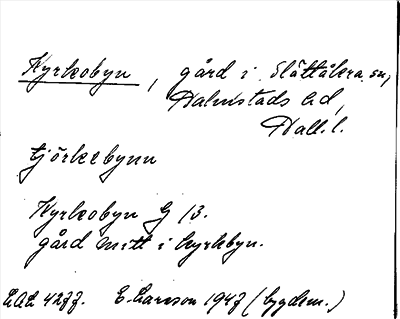 Kyrkobyn, gård i Slättåkra sn,
Halmstads hd,
Hall. l.
tjörkebynn
Kyrkobyn G 13.
gård mitt i kyrkbyn.
E. Larsson 1947 (bygdem.)